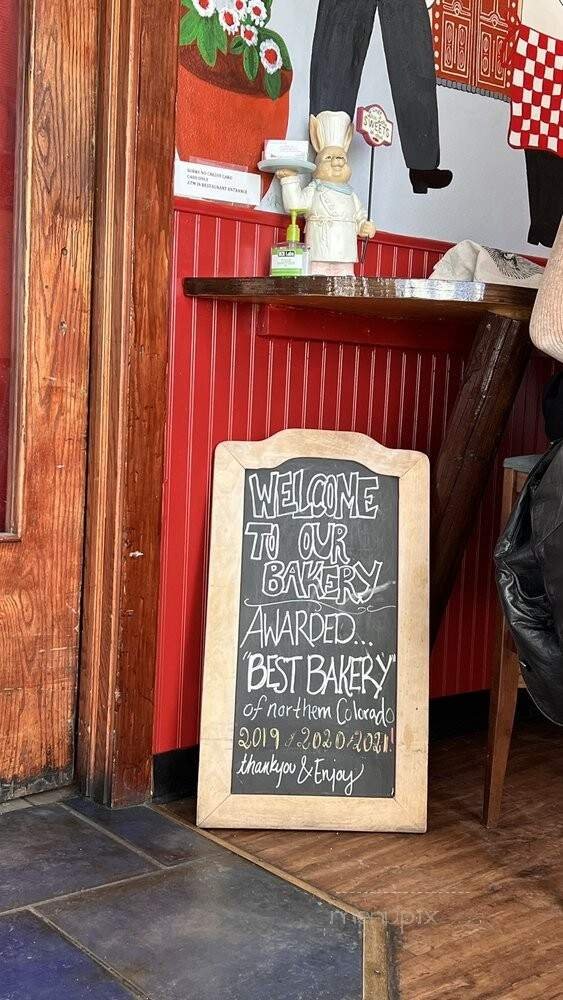 SWEETS
SORRY NO CREDIT CARD
CASH ONLY
ATM IN RESTAURANT ENTRANCE
WELCOME
TO OUR
BAKERY
AWARDED...
"BEST BAKERY"
of northern Colorado
2019 / 2020 / 2021!
thankyou & Enjoy
menupix